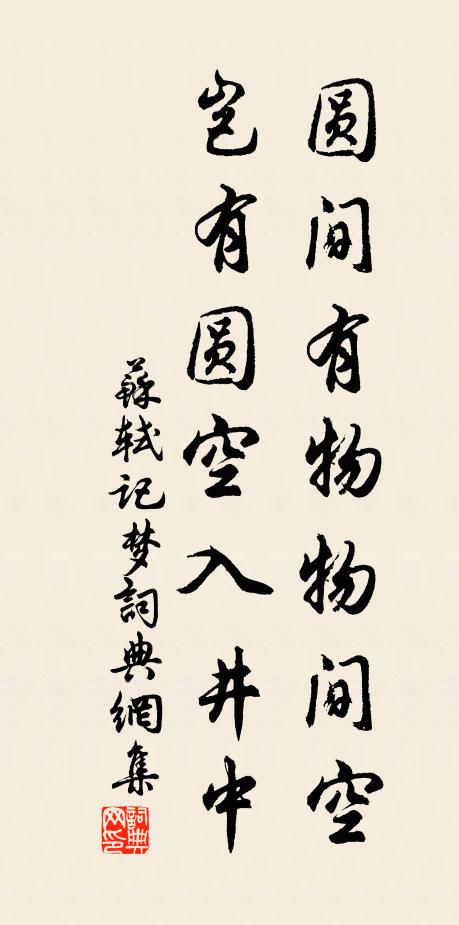 圆间有物物间空
岂有圆空入井中
蘇轼记梦詞典網集
詞典
网印